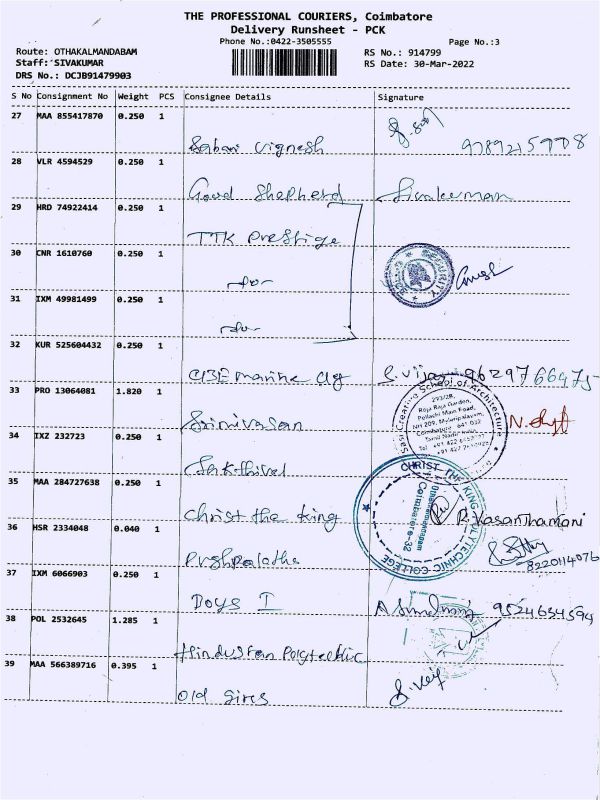 THE PROFESSIONAL COURIERS, Coimbatore
Delivery Runsheet - PCK
Phone No.:0422-3505555
Page No.:3
Route: OTHAKALMANDABAM
RS No.: 914799
Staff: SIVAKUMAR
RS Date: 30-Mar-2022
DRS No.: DCJB91479903
S No Consignment No Weight PCS Consignee Details Signature
27 MAA 855417870 0.250 1
Sabari Vignesh 9789215998
28 VLR 4594529 0.250 1
Good Shepherd Sivakumar
29 HRD 74922414 0.250 1
TTK Prestige
30 CNR 1610760 0.250 1
-do-
SECURITY
31 IXM 49981499 0.250 1
-do-
32 KUR 525604432 0.250 1
CBE marine S. Vijay 9629766475
33 PRO 13064081 1.820 1
Creative School of Architecture
293/2B,
Raja Raja Garden,
Pollachi Main Road,
NH 209, Myleripalayam,
Coimbatore 641 032
Tamil Nadu
Srinivasan
34 IXZ 232723 0.250 1
Sakthivel
35 MAA 284727638 0.250 1
CHRIST THE KING POLYTECHNIC COLLEGE
Othakkalmandapam
Coimbatore-32
Christ the King R. Vasanthamani
36 HSR 2334048 0.040 1
Pushpalatha 8220114076
37 IXM 6066903 0.250 1
Boys I 9524654594
38 POL 2532645 1.285 1
Hindustan Polytechnic
39 MAA 566389716 0.395 1
Old